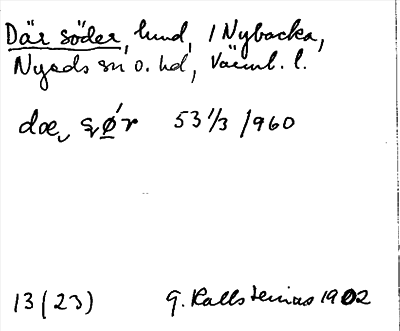 Där söder, lund, i Nybacka,
Nyeds sn o. hd, Värml. l.
dœ, sǿr 53 1/3 /960
13 (23) G. Kallstenius 1902